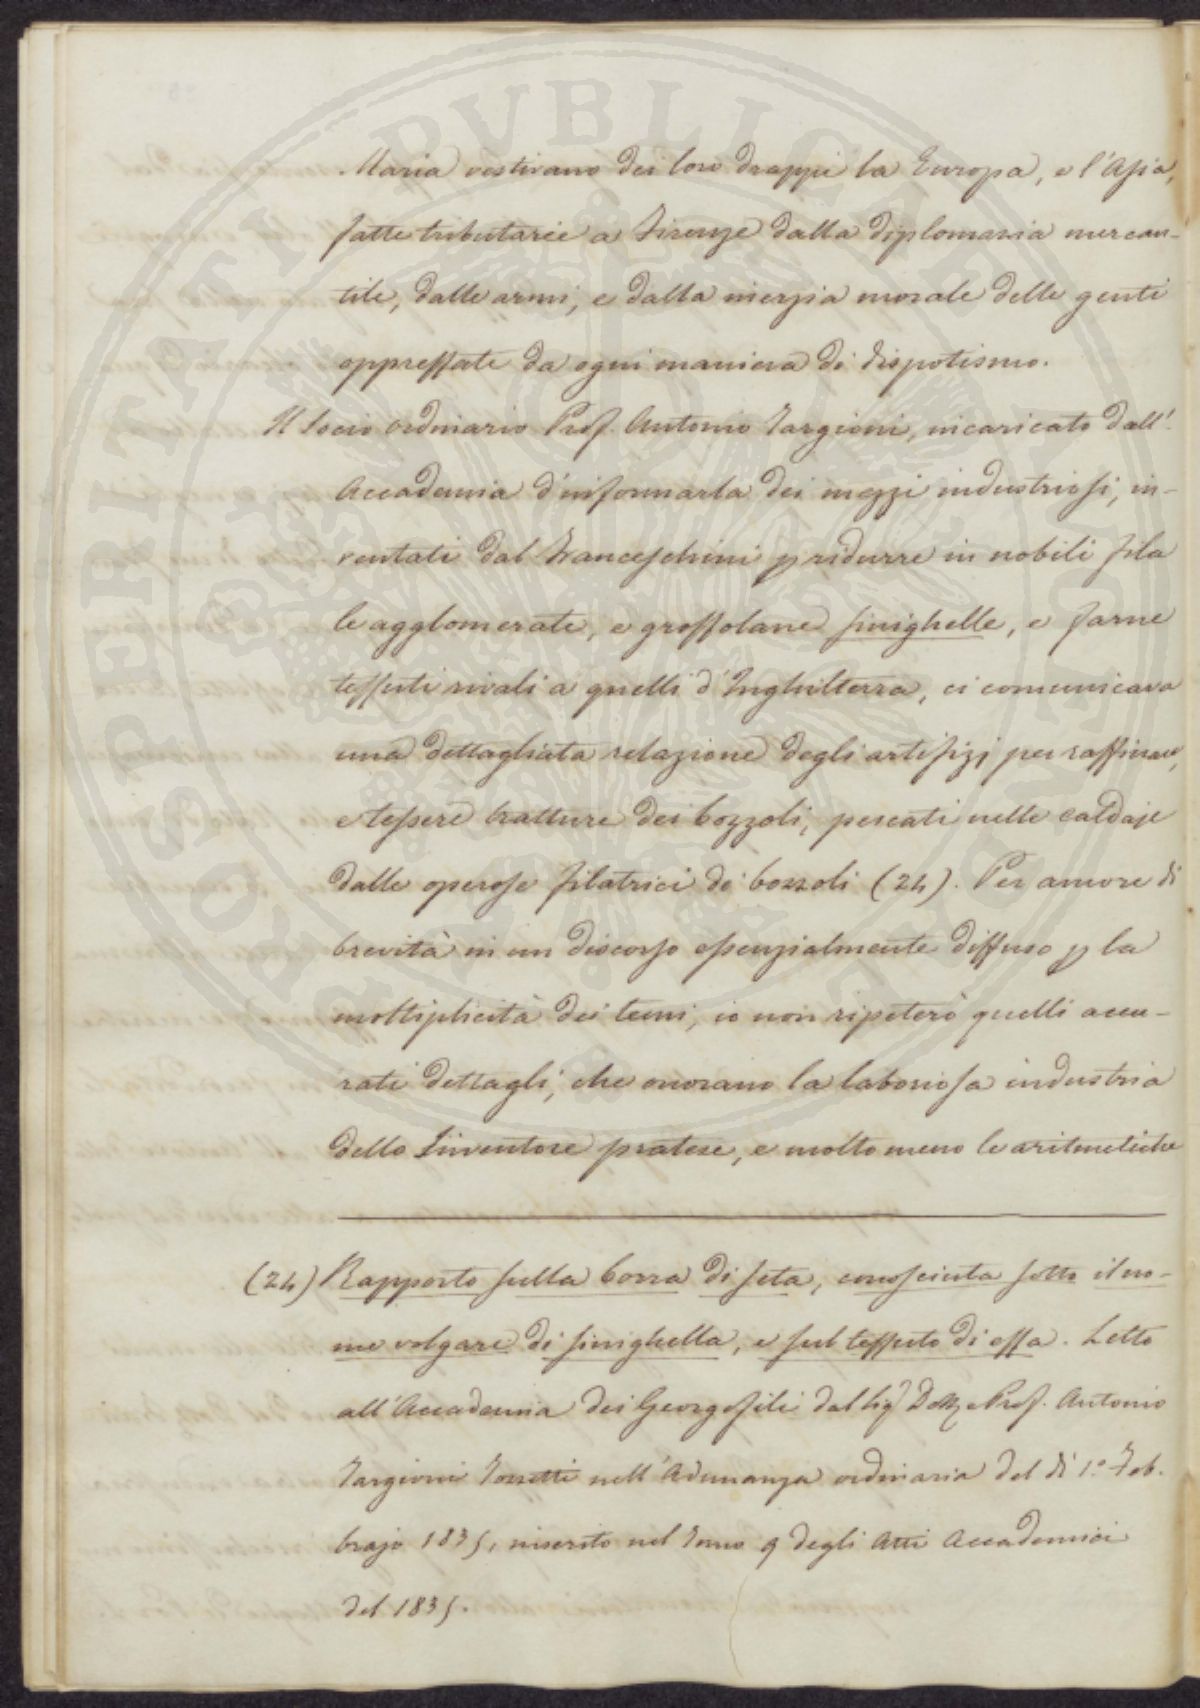 Maria vestivano dei loro drappi la Europa, e l'Asia,
fatte tributarie a Firenze dalla diplomazia mercan-
tile, dalle armi, e dalla inerzia morale delle genti
oppressate da ogni maniera di dispotismo.
Il Socio ordinario Prof. Antonio Targioni, incaricato dall'
Accademia d'informarla dei mezzi industriosi, in-
ventati dal Franceschini p ridurre in nobili fila
le agglomerate, e grossolane sinighelle, e farne
tessuti rivali a quelli d'Inghilterra, ci comunicava
una dettagliata relazione degli artifizj per raffinare,
e tessere tratture dei bozzoli, pescati nelle caldaje
dalle operose filatrici di bozzoli (24). Per amore di
brevità in un discorso essenzialmente diffuso p la
moltiplicità dei temi, io non ripeterò quelli accu-
rati dettagli, che onorano la laboriosa industria
dello Inventore pratese, e molto meno le aritmetiche
(24) Rapporto sulla borra di seta, conosciuta sotto il no-
me volgare di sinighella, e sul tessuto di essa. Letto
all'Accademia dei Georgofili dal Sig. Dott. e Prof. Antonio
Targioni Tozzetti nell'Adunanza ordinaria del dì 1.o Feb.
brajo 1835, inserito nel Tomo 9 degli Atti Accademici
del 1835.
PROSPERITATI PUBLICAE AUGENDAE